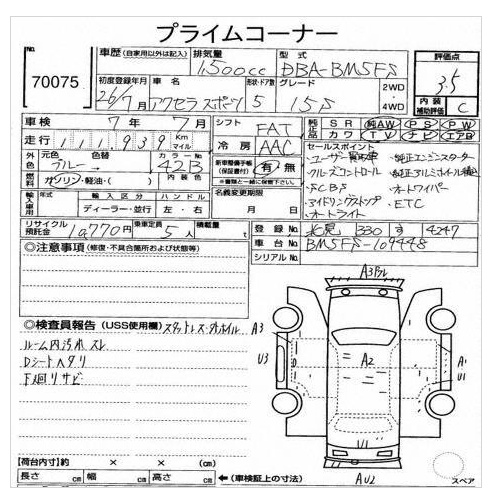 プライムコーナー
No.
70075
車歴 (自家用以外は記入)
排気量 1,500cc
型式 DBA-BM5FS
評価点 3.5
内装補助評価 C
初度登録年月 26/7月
車名 アクセラスポーツ
形状・ドア数 5
グレード 15S
2WD・4WD
車検 7年 7月
シフト FAT
純正品 SR 純AW PS PW
カワ TV ナビ エアB
走行 111,939 Km マイル
冷房 AAC
セールスポイント
・ユーザー買取車 ・純正エンジンスターター
・クルーズコントロール ・純正アルミホイル積込
・SCBS ・オートワイパー
・アイドリングストップ ・ETC
・オートライト
外色 元色 ブルー 色替
カラーNo. 42B
内装色
燃料 ガソリン・軽油・( )
新車整備手帳(保証書付) 有・無
※書類に挟んで下さい
名義変更期限
月 日
輸入車用 年式 輸入区分 ハンドル
ディーラー・並行 左・右
リサイクル預託金 10770円
乗車定員 5人
積載量 t
登録No. 北見 330 す 4247
車台No. BM5FS-109448
シリアルNo.
◎注意事項 (修復・不具合箇所および状態等)
◎検査員報告 (USS使用欄) スタットレス・タホイル
ルーム内汚れ スレ
Dシートヘタリ
下廻りサビ
A3 アル
A3
U3
A2
A1
U1
U1
A U2
【荷台内寸】約 × × (cm)
長さ cm 幅 cm 高さ cm ←(車検証上の寸法)
スペア